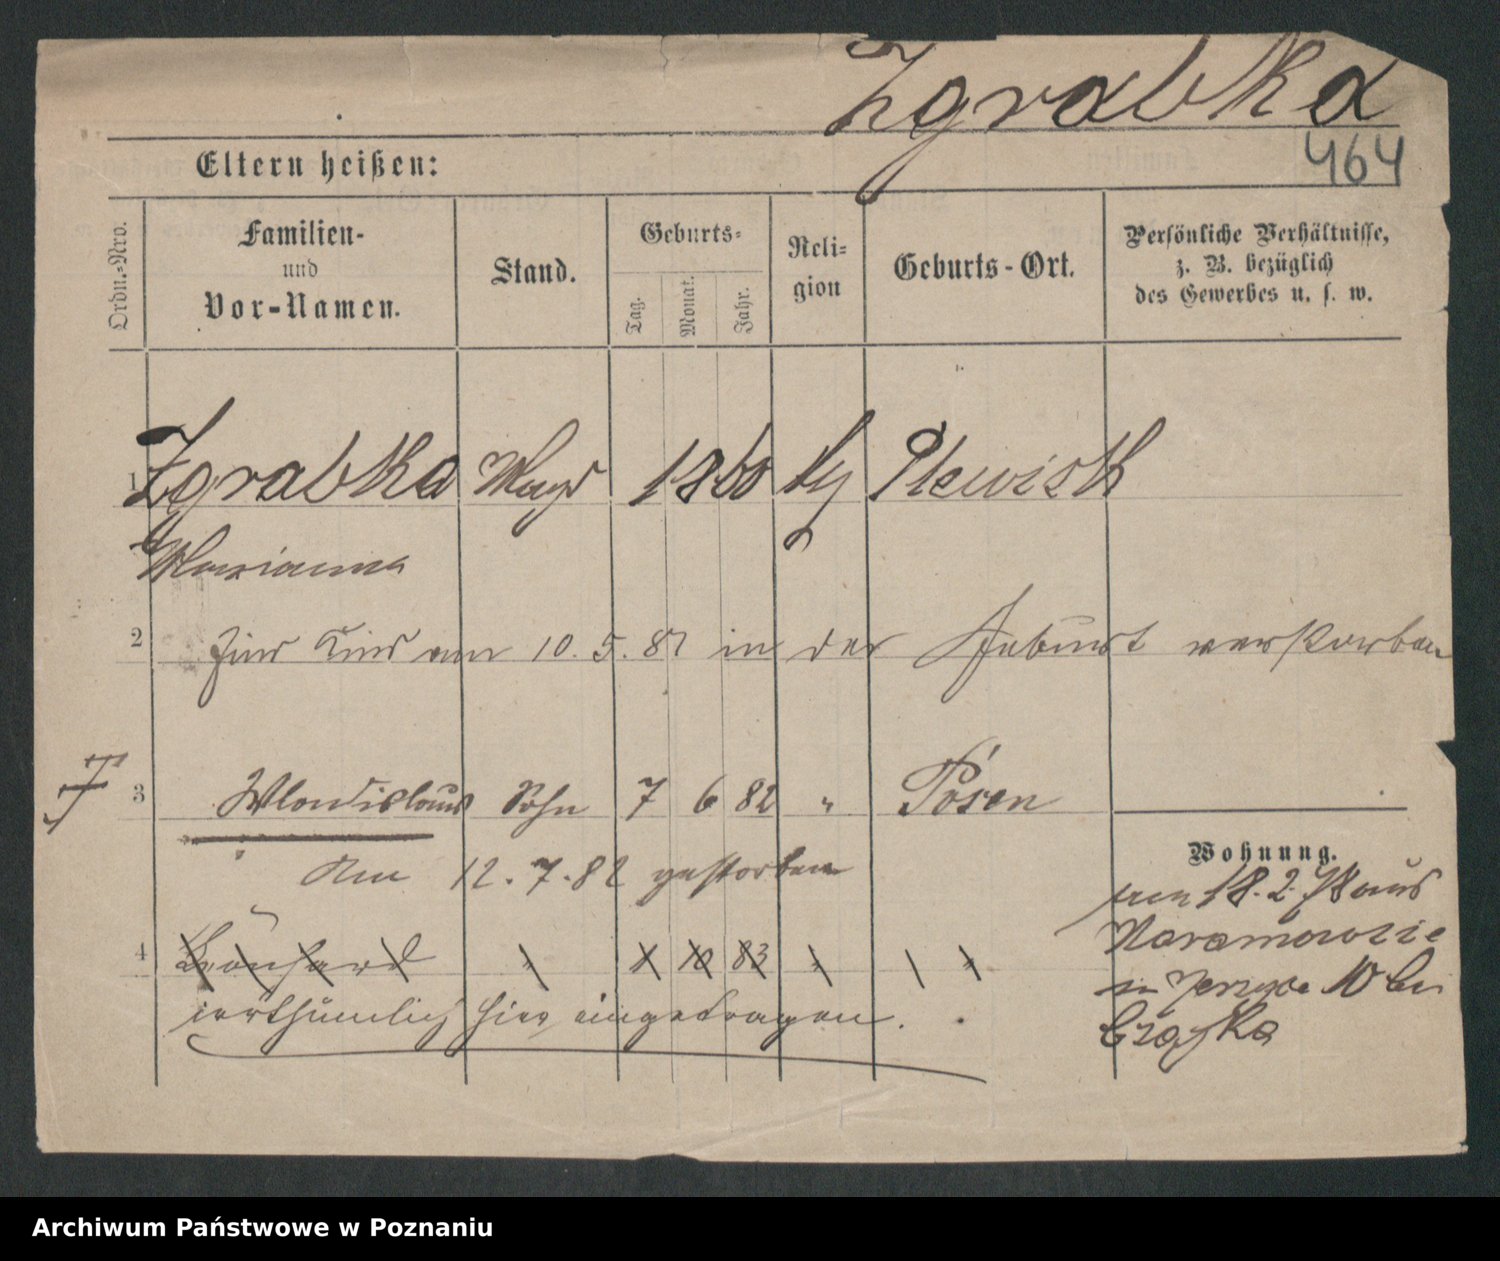 Zgrabka
464
Eltern heißen:
Ordn.-Nro.
Familien-
und
Vor-Namen.
Stand.
Geburts-
Tag.
Monat.
Jahr.
Reli-
gion
Geburts-Ort.
Persönliche Verhältnisse,
z. B. bezüglich
des Gewerbes u. s. w.
1 Zgrabka Magd 1860 Plewisk
Marianna
2 Kind am 10. 5. 81 in der Geburt verstorben
3 Wladislaus Sohn 7 6 82 " Posen
am 12. 7. 82 gestorben
Wohnung.
18. 2. 78 aus
Naramowice
in Jerzyce 10 bei
4 Leonhard 1 10 83
irrthümlich hier eingetragen.
Archiwum Państwowe w Poznaniu